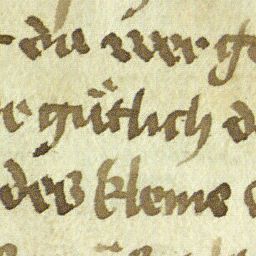 da wer ge
e gütlich d
des kleine